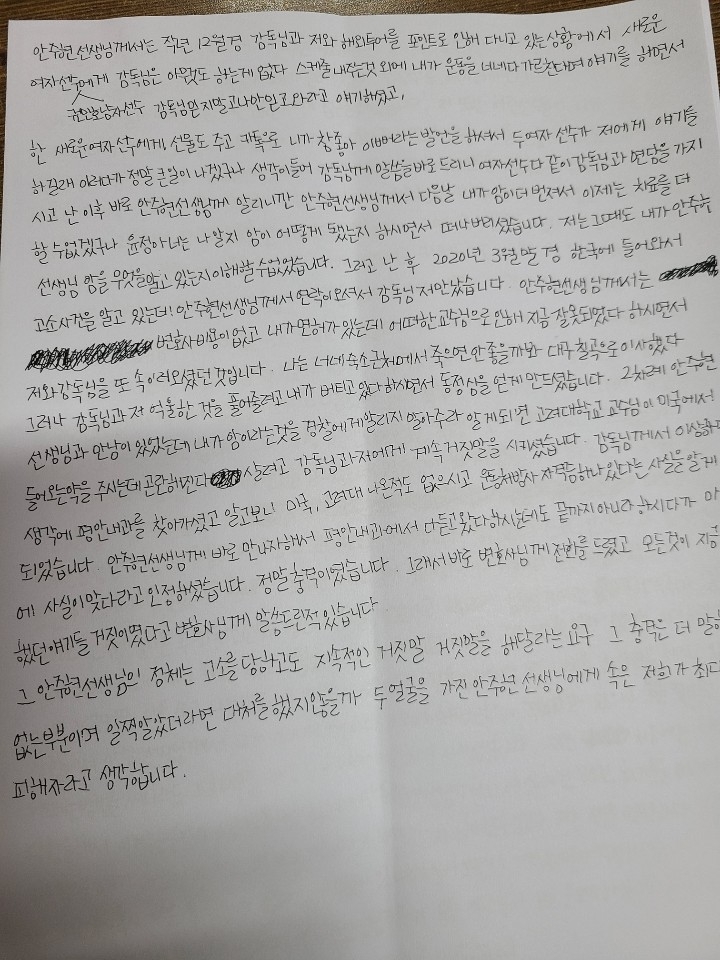 안주현선생님께서는 작년 12월경 감독님과 저와 해외투어를 포인트로 인해 다니고 있는 상황에서 새로운
여자선수에게 감독님은 아웃도 하는게 없다 스케줄내작는것 외에 내가 운동을 너네다가르친다며 얘기를 하면서
감독님믿지말고나만믿고와라고 얘기해왔고,
한 새로운여자선수에게 선물도 주고 카톡으로 니가 참좋아 이뻐라는발언을 하셔서 두여자 선수가 저에게 얘기를
하길래 이러다가 정말 큰일이 나겠구나 생각이들어 감독님께 말씀을바로드리니 여자선수다 같이 감독님과 면담을 가지
시고 난 이후 바로 안주현선생님께 알리니깐 안주현선생님께서 다음날 내가 암이더 번져서 이제는 치료를 더
할 수없겠구나 윤정아너는 나알지 암이 어떻게 됐는지 하시면서 떠나버리셨습니다. 저는그때도 내가 안주현
선생님 암을 무엇을알고 있는지이해할수없었습니다. 그러고 난 후 2020년 3월말 경 한국에 들어와서
고소사건을 알고 있는데! 안주현선생님께서 연락이오셔서 감독님 저만났습니다. 안주현선생님께서는
변호사비용이없고 내가면허가있는데 어떠한교수님으로인해 지금 잘못되었다 하시면서
저와감독님을 또 속이려오셨던 것입니다. 나는 너네숙소근처에서 죽으면 안좋을까봐 대구칠곡으로이사했다
그러나 감독님과 저 억울한 것을 풀어줄려고내가 버티고있다하시면서 동정심을 얻게 만드셨습니다. 2차례 안주현
선생님과 만남이 있었는데 내가암이라는것을 경찰에게알리지 말아주라 알게되면 고려대학교 교수님이 미국에서
들어오는약을 주시는데 곤란해진다 살려고 감독님과저에게 계속거짓말을 시키셨습니다. 감독님께서 이상하다
생각에 평안내과를 찾아가셨고 알고보니 미국, 고려대 나온적도 없으시고 운동처방사 자격증하나있다는 사실을 알게
되었습니다. 안주현선생님께 바로 만나자해서 평안내과에서 다듣고왔다하시는데도 끝까지아니라 하시다가 마
에 사실이맞다라고 인정하셨습니다. 정말충격이였습니다. 그래서바로 변호사님께 전화를 드렸고 모든것이 지금
했던얘기들 거짓이였다고 변호사님께 말씀드린적있습니다.
그 안주현선생님의 정체는 고소를 당하고도 지속적인 거짓말 거짓말을 해달라는요구 그 충격은 더 말할
없는부분이며 일찍알았더라면 대처를 했지않을까 두얼굴을 가진 안주현 선생님에게 속은 저희가 최대
피해자라고 생각합니다.